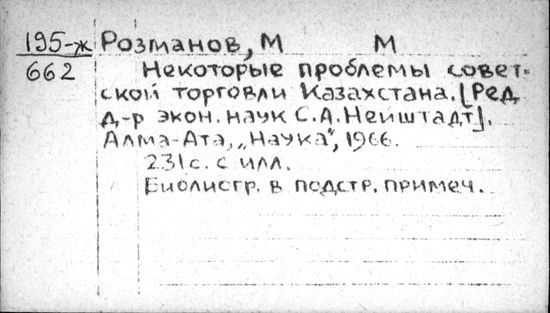 195-ж Розманов, М М
662 Некоторые проблемы совет-
ской торговли Казахстана. [Ред
д-р экон. наук С.А. Нейштадт].
Алма-Ата, „Наука", 1966.
231 с. с илл.
Библиогр. в подстр. примеч.